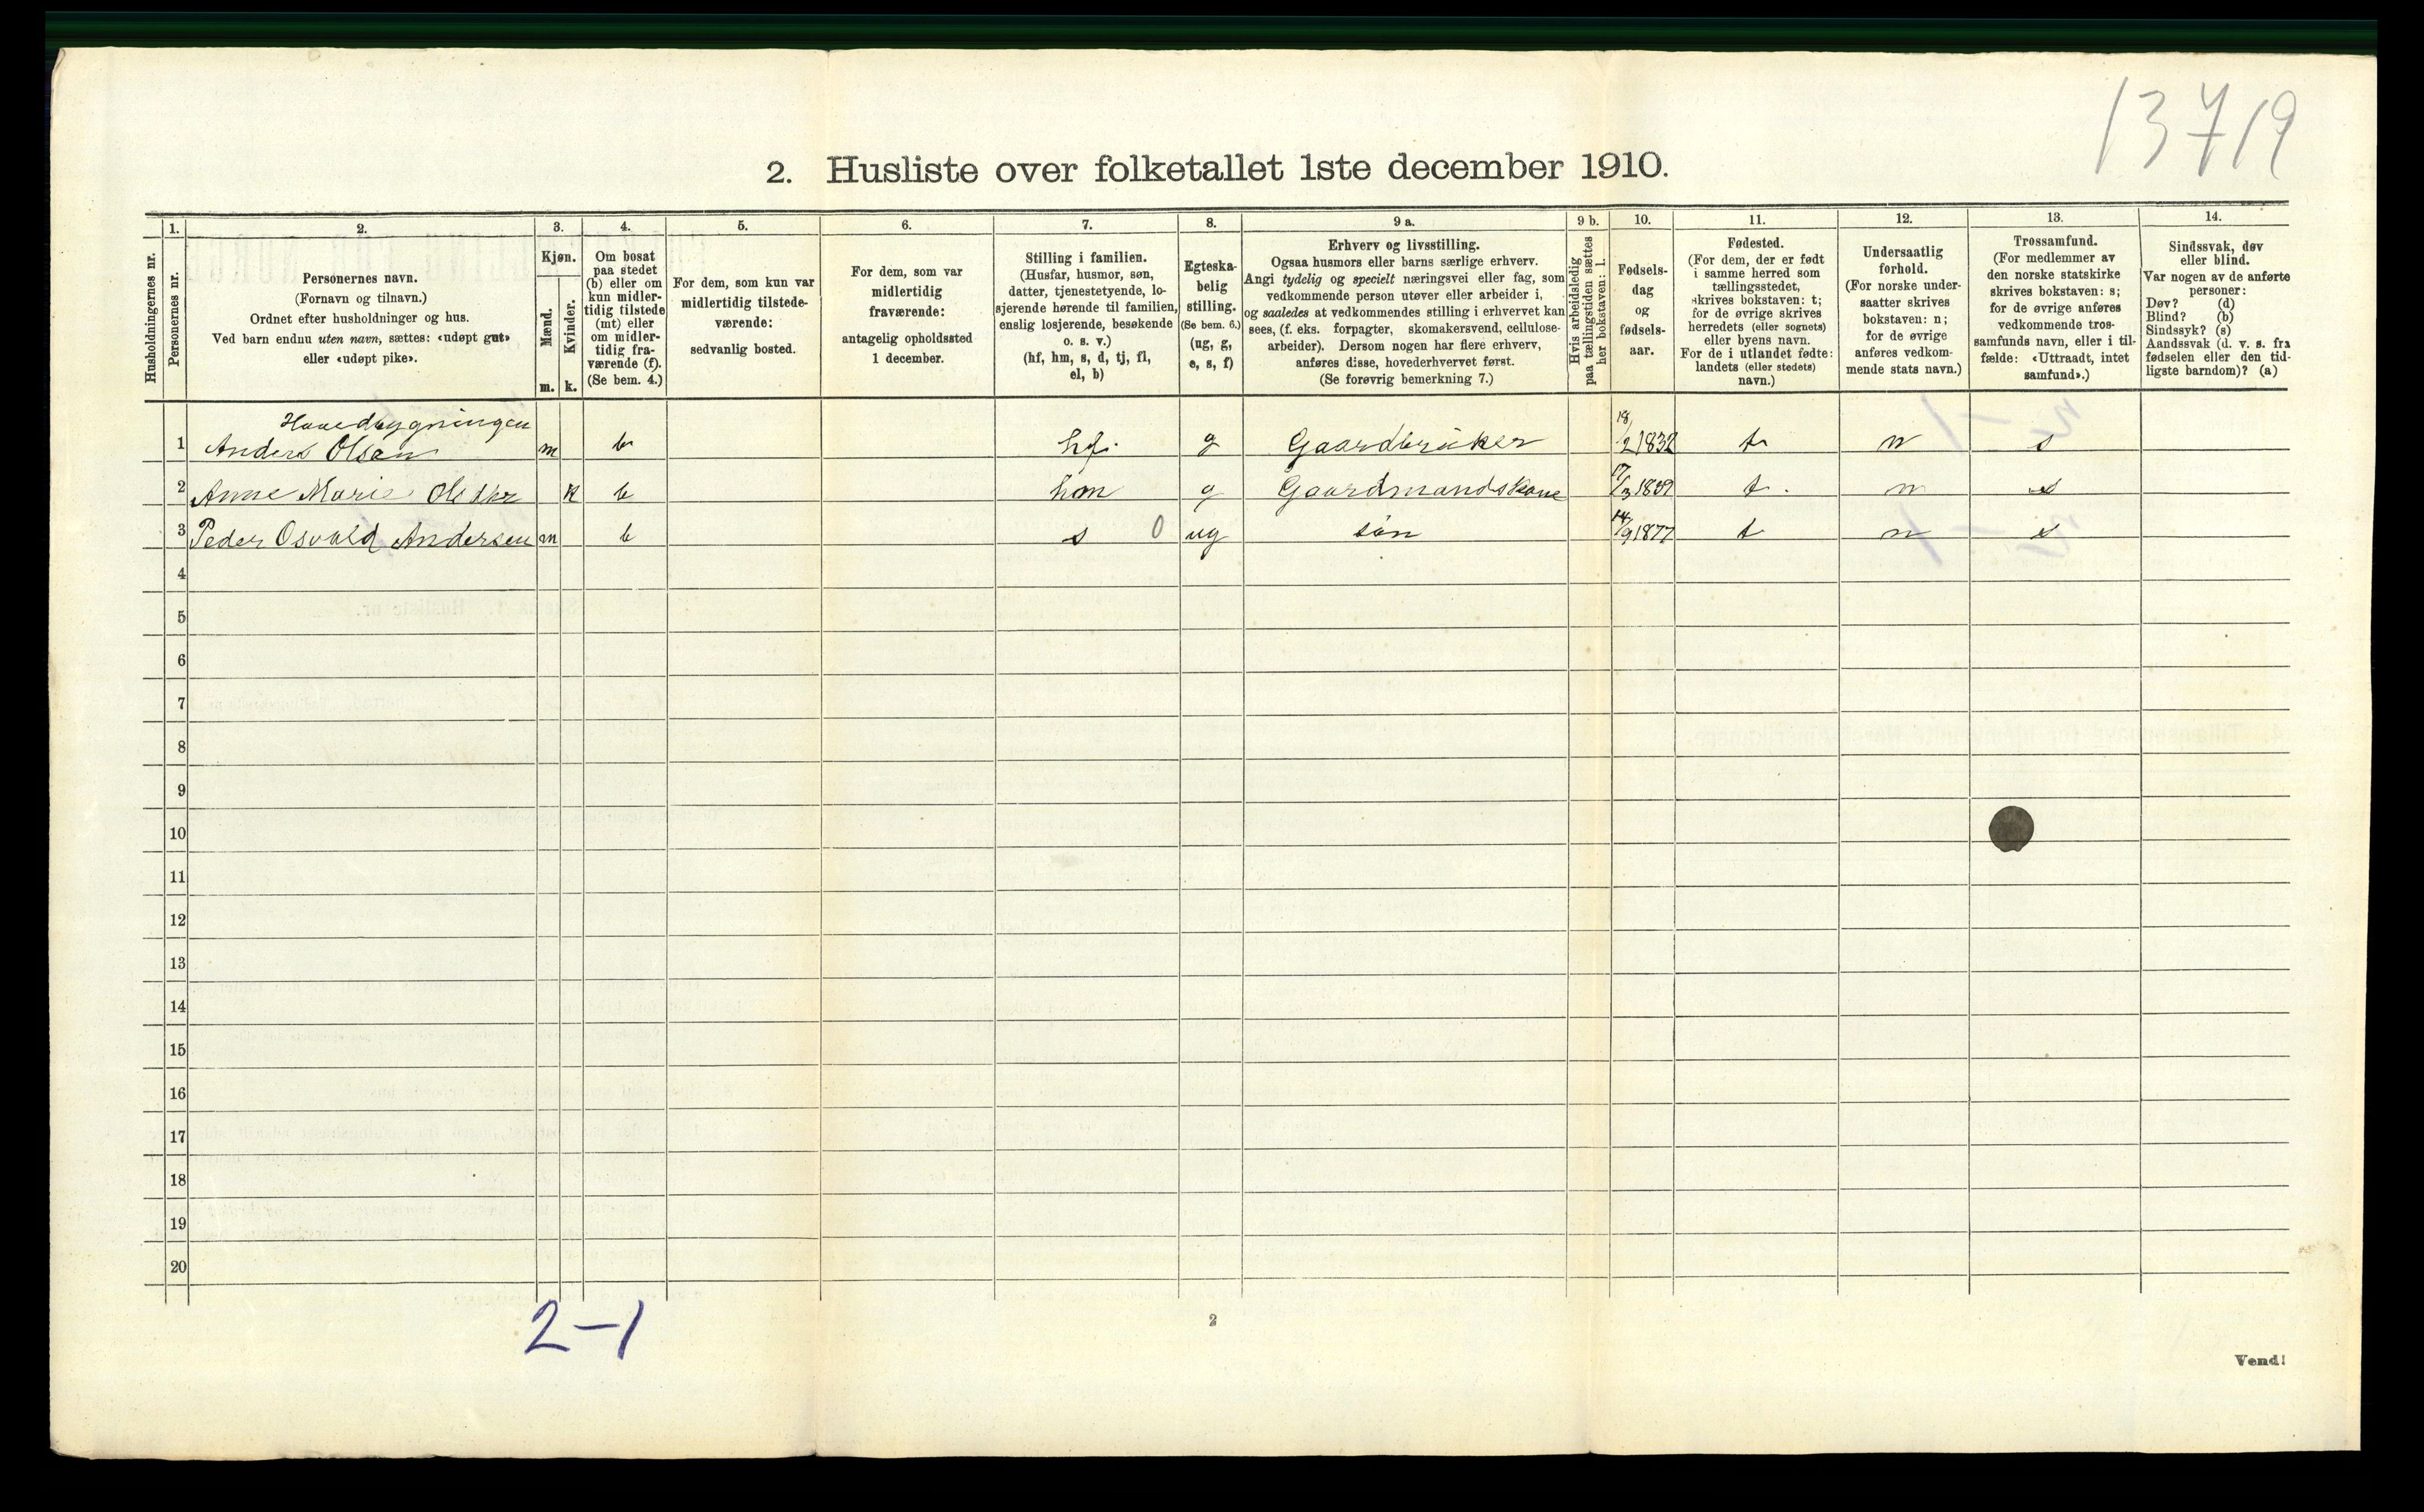 13719
2. Husliste over folketallet 1ste december 1910.
Husholdningernes nr.
1.
Personernes nr.
2.
Personernes navn.
(Fornavn og tilnavn.)
Ordnet efter husholdninger og hus.
Ved barn endnu uten navn, sættes: «udøpt gut»
eller «udøpt pike».
3.
Kjøn.
Mænd.
m.
Kvinder.
k.
4.
Om bosat
paa stedet
(b) eller om
kun midler-
tidig tilstede
(mt) eller
om midler-
tidig fra-
værende (f).
(Se bem. 4.)
5.
For dem, som kun var
midlertidig tilstede-
værende:
sedvanlig bosted.
6.
For dem, som var
midlertidig
fraværende:
antagelig opholdssted
1 december.
7.
Stilling i familien.
(Husfar, husmor, søn,
datter, tjenestetyende, lo-
sjerende hørende til familien,
enslig losjerende, besøkende
o. s. v.)
(hf, hm, s, d, tj, fl,
el, b)
8.
Egteska-
belig
stilling.
(Se bem. 6.)
(ug, g,
e, s, f)
9 a.
Erhverv og livsstilling.
Ogsaa husmors eller barns særlige erhverv.
Angi tydelig og specielt næringsvei eller fag, som
vedkommende person utøver eller arbeider i,
og saaledes at vedkommendes stilling i erhvervet kan
sees, (f. eks. forpagter, skomakersvend, cellulose-
arbeider). Dersom nogen har flere erhverv,
anføres disse, hovederhvervet først.
(Se forøvrig bemerkning 7.)
9 b.
Hvis arbeidsledig
paa tællingstiden sættes
her bokstaven: l.
10.
Fødsels-
dag
og
fødsels-
aar.
11.
Fødested.
(For dem, der er født
i samme herred som
tællingsstedet,
skrives bokstaven: t;
for de øvrige skrives
herredets (eller sognets)
eller byens navn.
For de i utlandet fødte:
landets (eller stedets)
navn.)
12.
Undersaatlig
forhold.
(For norske under-
saatter skrives
bokstaven: n;
for de øvrige
anføres vedkom-
mende stats navn.)
13.
Trossamfund.
(For medlemmer av
den norske statskirke
skrives bokstaven: s;
for de øvrige anføres
vedkommende tros-
samfunds navn, eller i til-
fælde: «Uttraadt, intet
samfund».)
14.
Sindssvak, døv
eller blind.
Var nogen av de anførte
personer:
Døv? (d)
Blind? (b)
Sindssyk? (s)
Aandssvak (d. v. s. fra
fødselen eller den tid-
ligste barndom)? (a)
Hovedbygningen
1 Anders Olsen m b hf. g Gaardbruker 18/2 1832 t n s
2 Anne Marie k b hm g Gaardmandskone t. n s
3 Peder Osvald Andersen m b s 0 ug sön 14/9 1877 t n s
4
5
6
7
8
9
10
11
12
13
14
15
16
17
18
19
20
2-1
2
Vend!